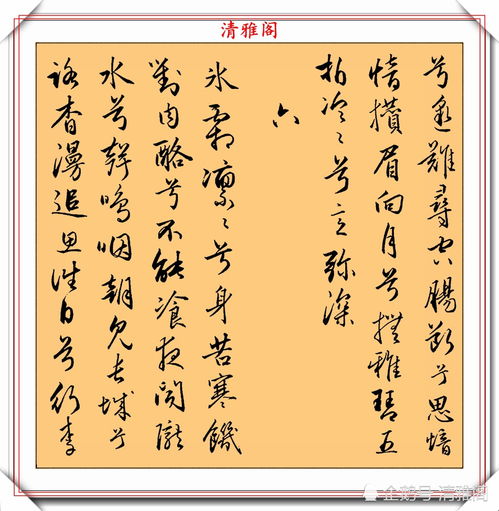 清雅阁
兮邈難尋空腸斷兮思愔
愔攢眉向月兮撫雅琴五
拍泠〻兮意弥深
六
氷霜凛〻兮身苦寒饑
對肉酪兮不能飡夜聞隴
水兮聲嗚咽朝見長城兮
路杳漫追思往日兮行李
企鹅号 清雅阁